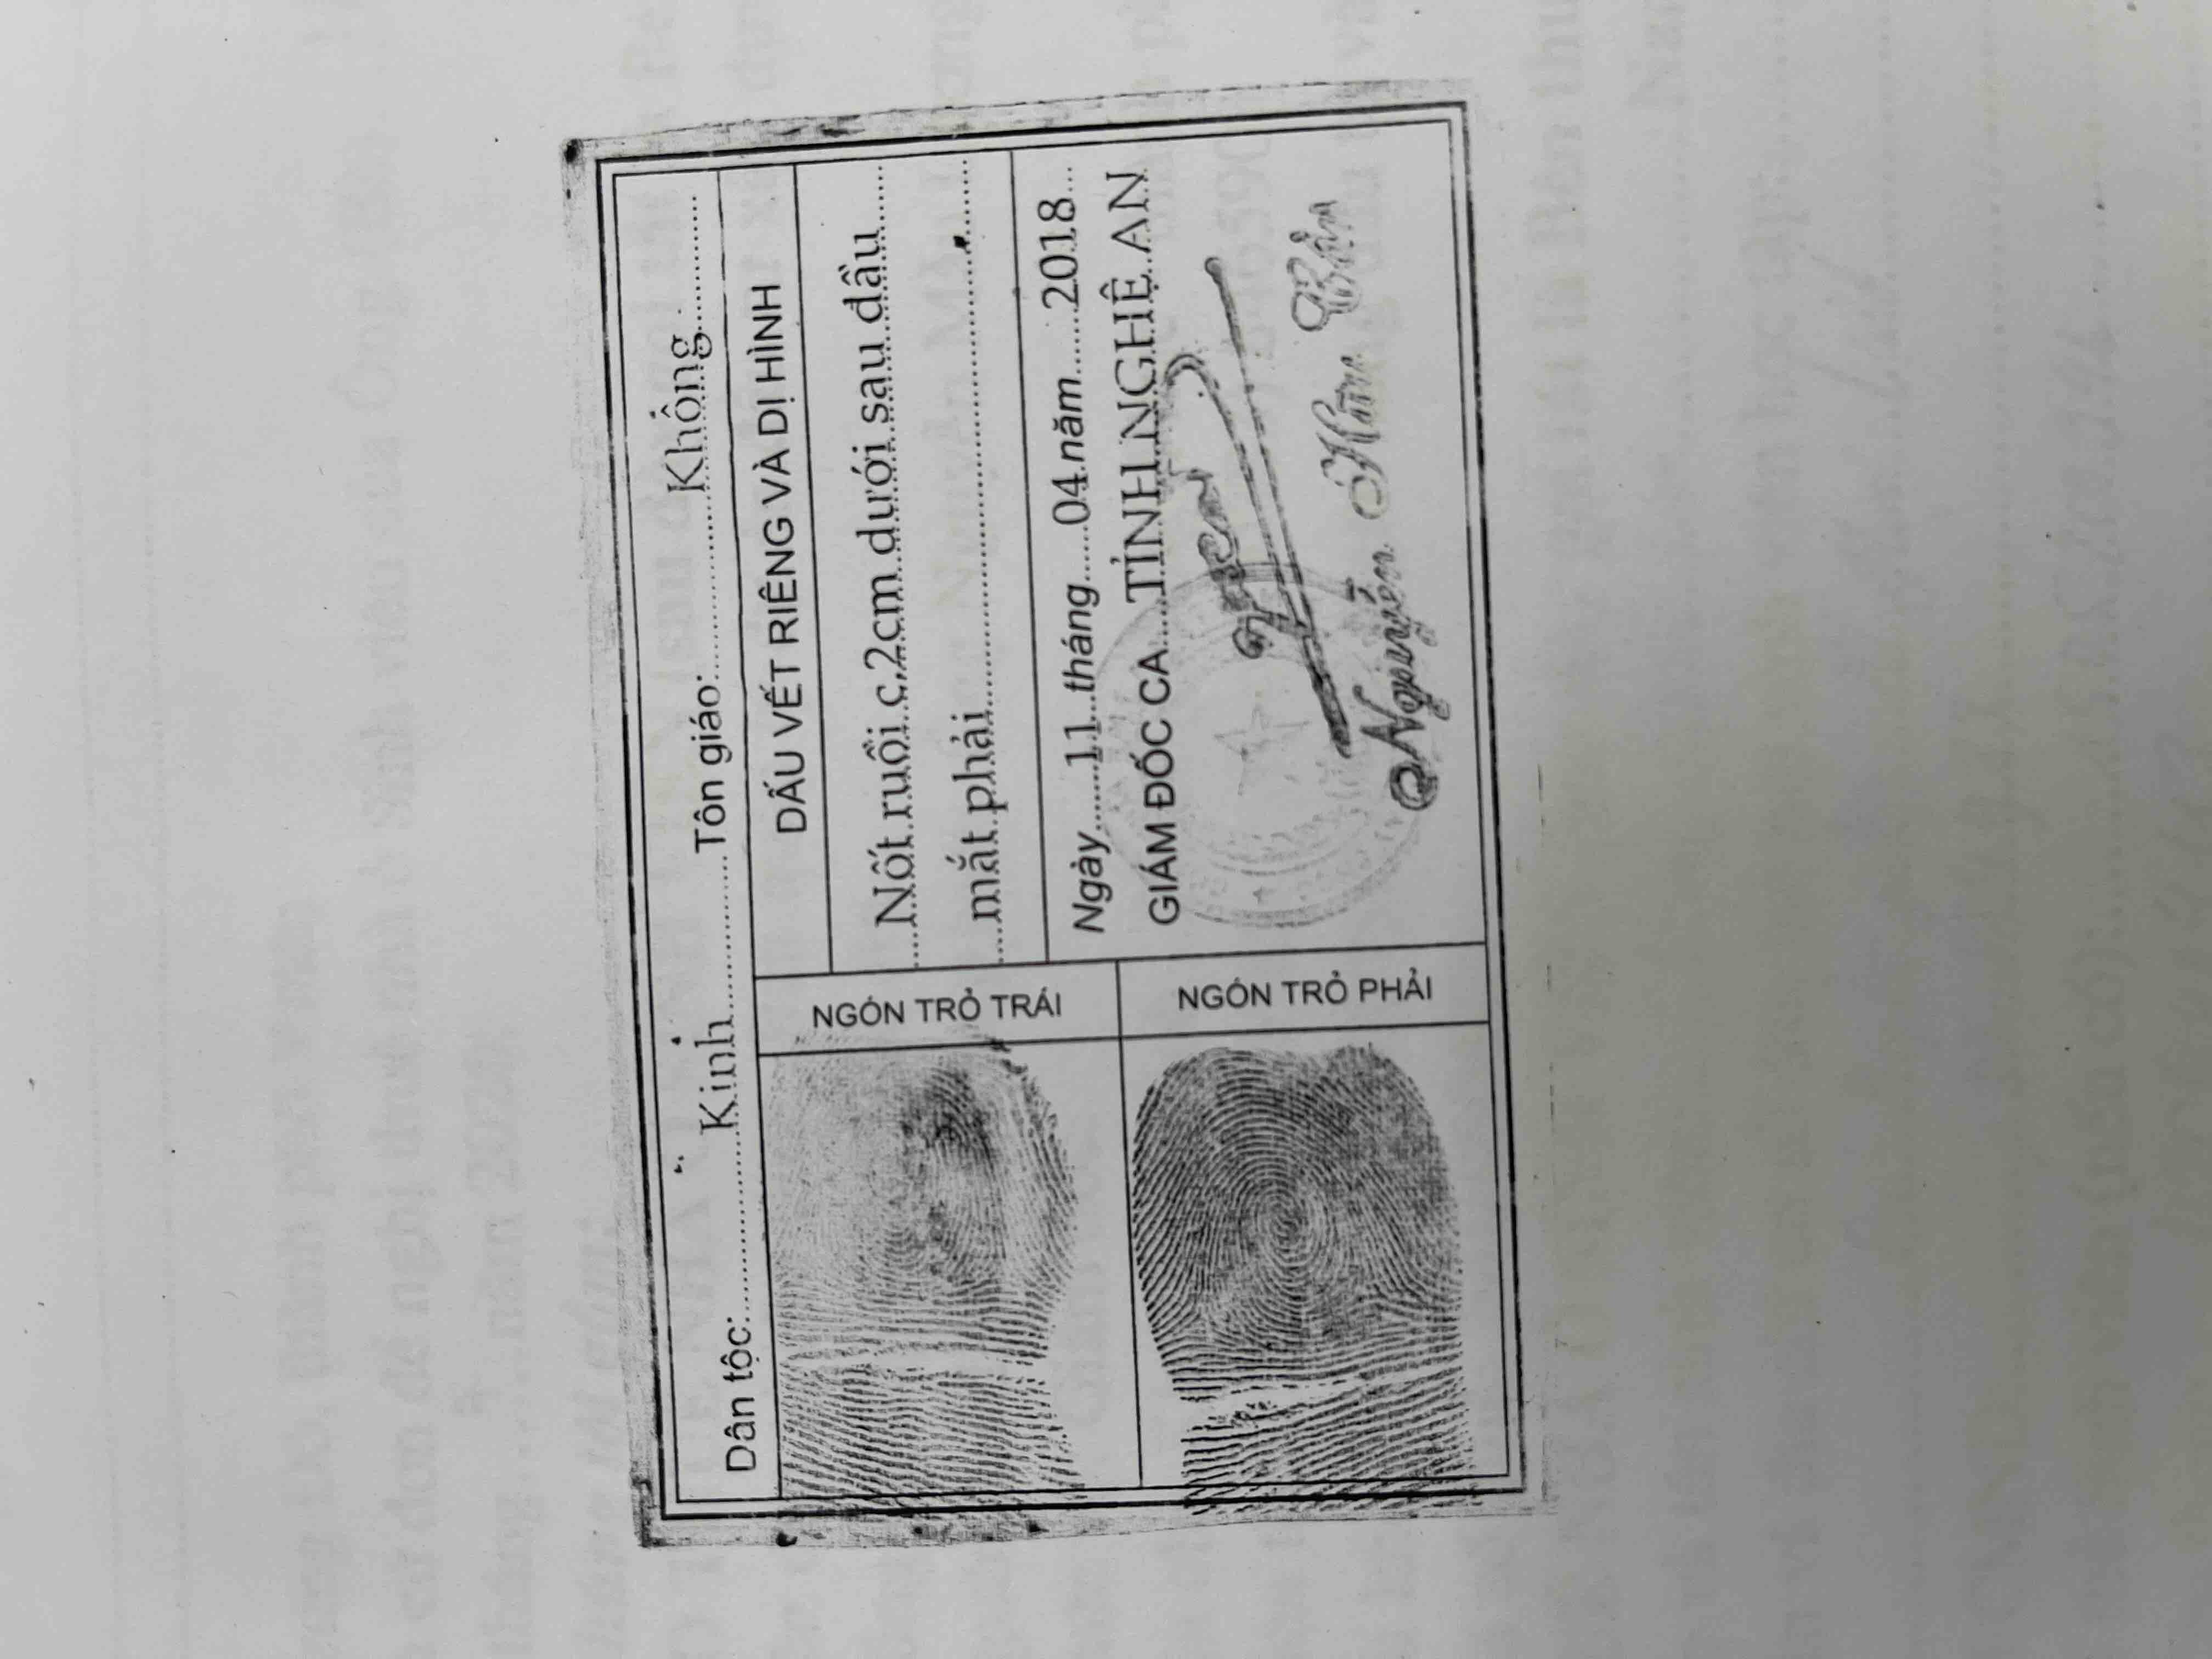 Dân tộc: Kinh Tôn giáo: Không
DẤU VẾT RIÊNG VÀ DỊ HÌNH
Nốt ruồi c,2cm dưới sau đầu
mắt phải
Ngày 11 tháng 04 năm 2018
GIÁM ĐỐC CA TỈNH NGHỆ AN
Nguyễn Hữu
NGÓN TRỎ TRÁI
NGÓN TRỎ PHẢI